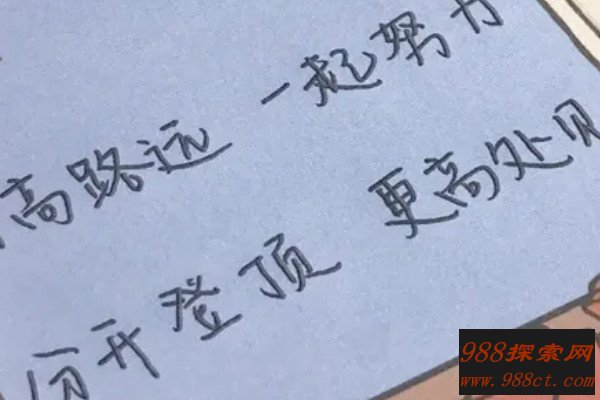 高路远 一起努力
分开登顶 更高处见
988探索网
www.988ct.com